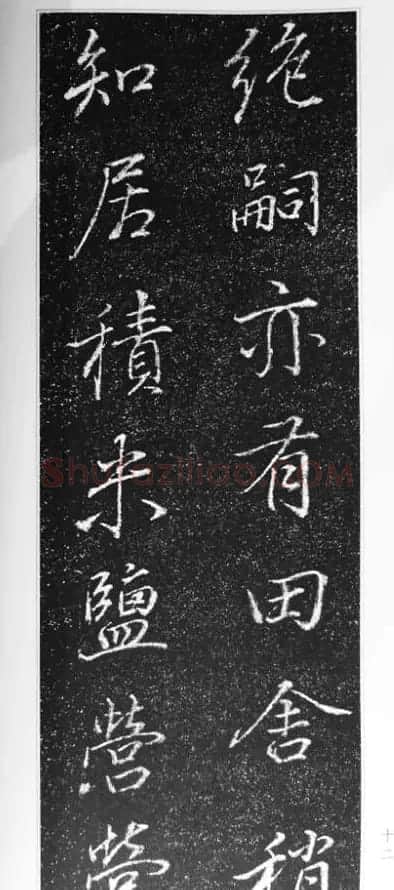 絶嗣亦有田舍稍
知居積米鹽營營
Shufaziliao.COM
十二